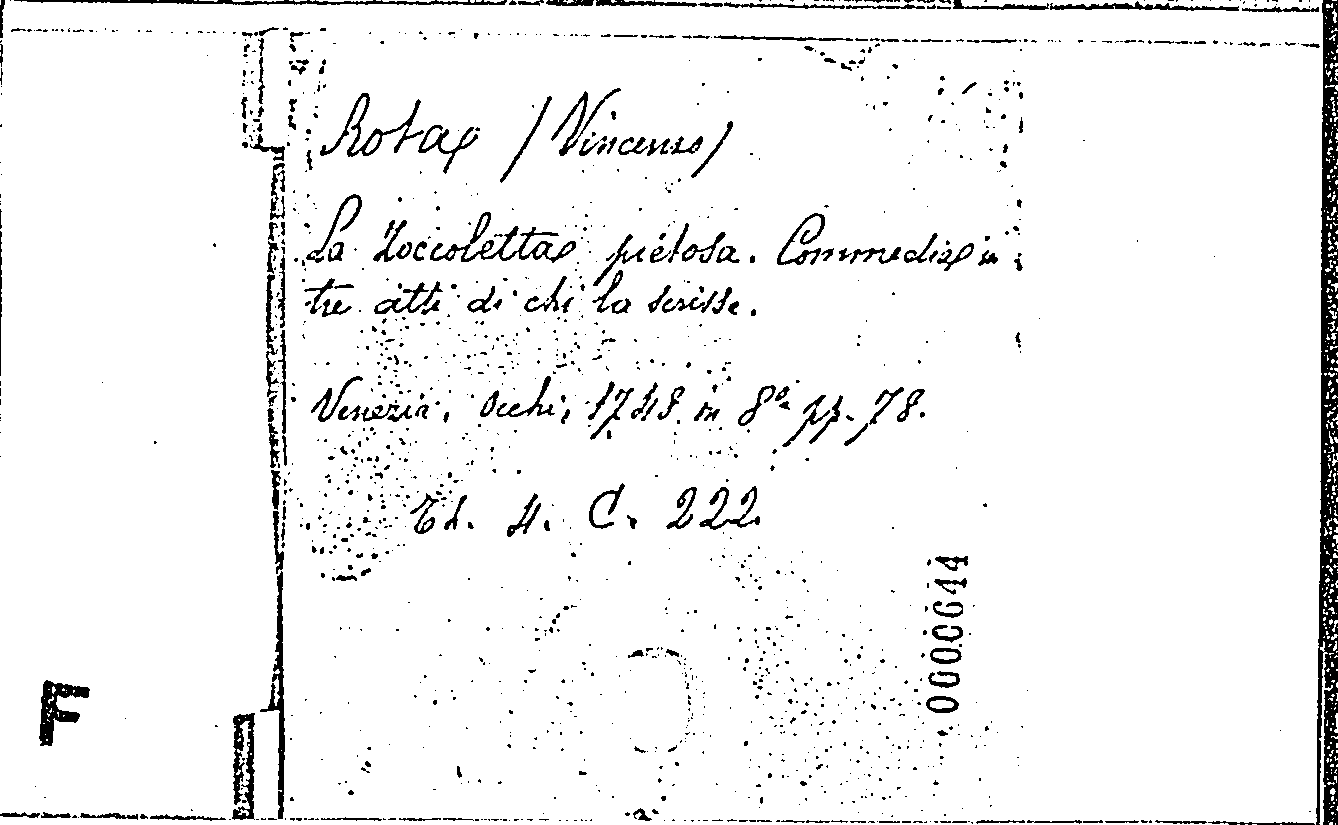 Rota (Vincenzo)
La Zoccoletta pietosa. Commedia in
tre atti di chi la scrisse.
Venezia, Occhi, 1748 in 8º pp. 78.
4. C. 222
0000644
F